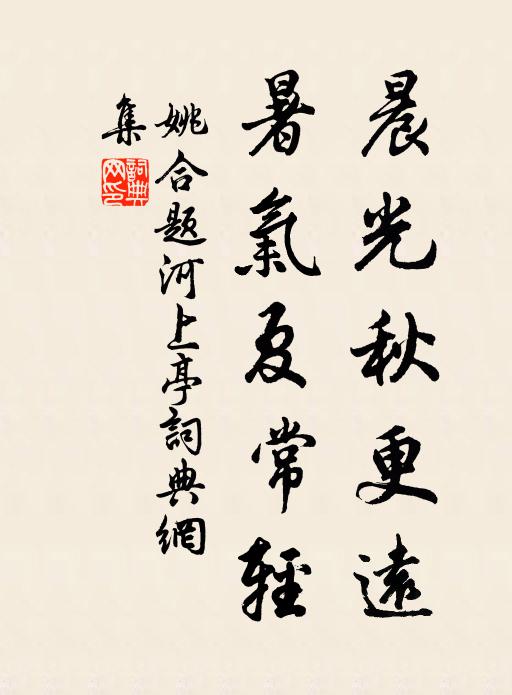 晨光秋更遠
暑氣夏常輕
姚合題河上亭詞典網
集
詞典网印